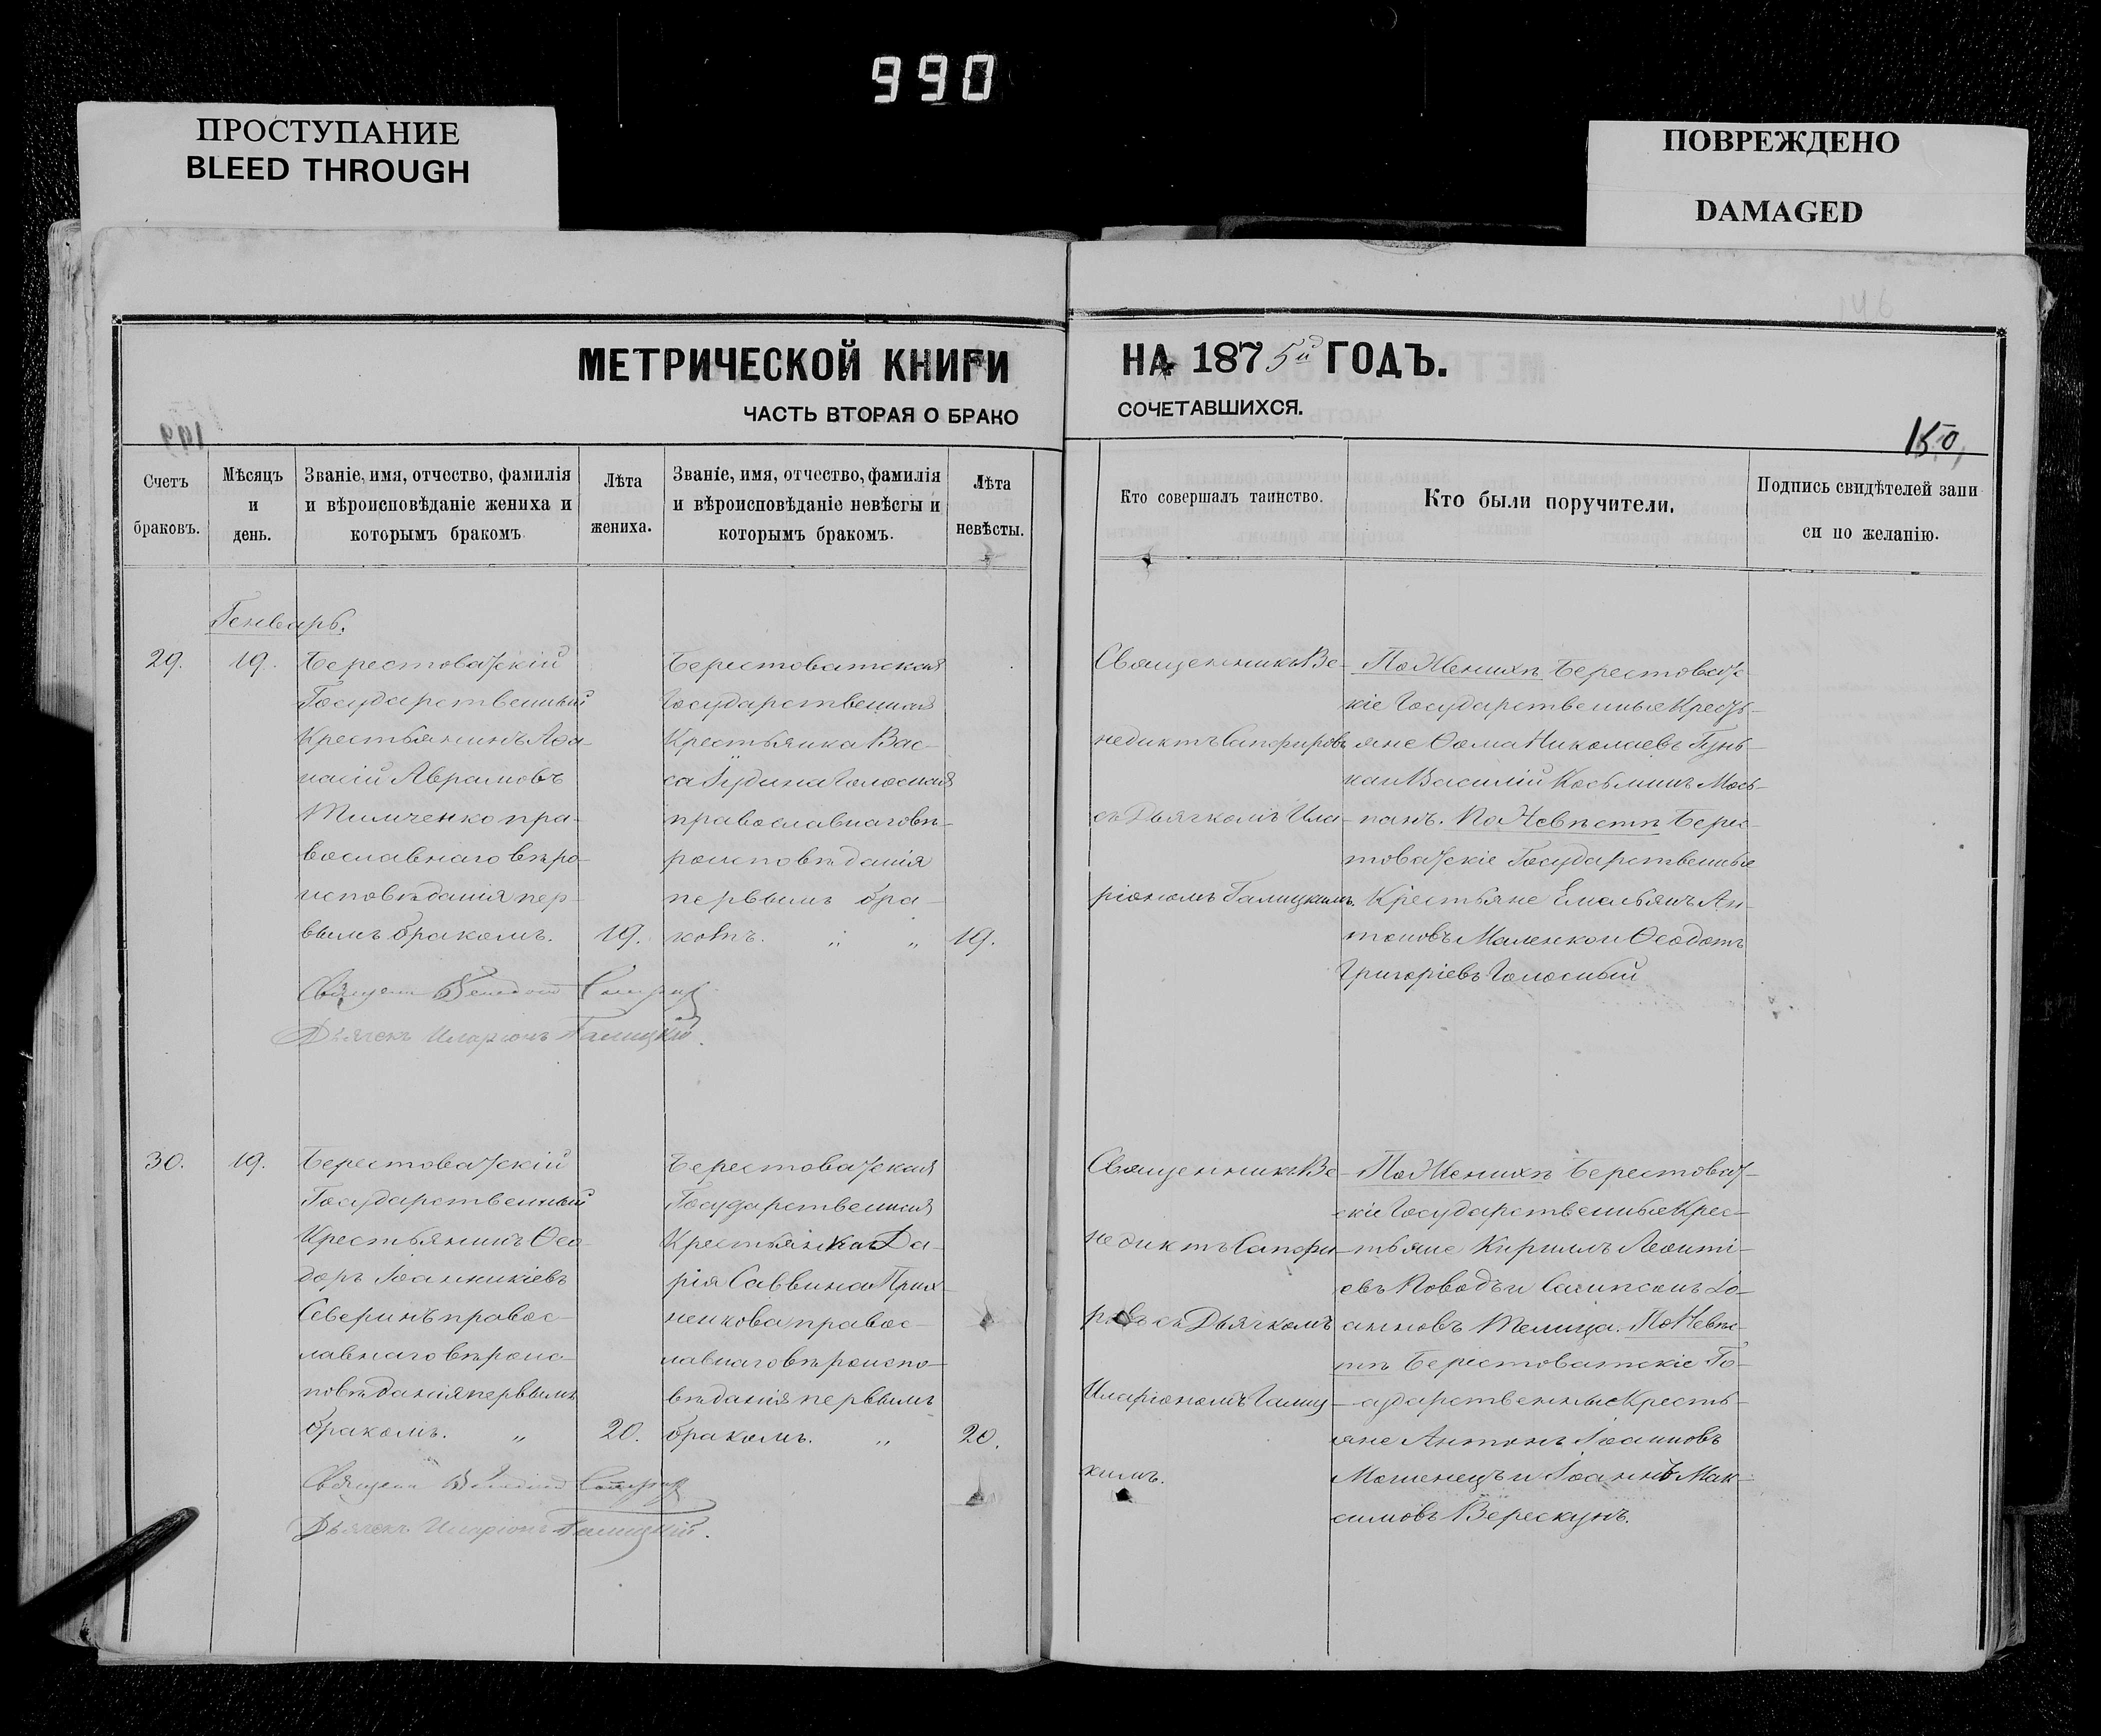 990
ПРОСТУПАНИЕ
BLEED THROUGH
ПОВРЕЖДЕНО
DAMAGED
МЕТРИЧЕСКОЙ КНИГИ НА 1875й ГОДЪ.
ЧАСТЬ ВТОРАЯ О БРАКО СОЧЕТАВШИХСЯ.
150
Счетъ браковъ.
Мѣсяцъ и день.
Званіе, имя, отчество, фамилія
и вѣроисповѣданіе жениха и
которымъ бракомъ
Лѣта жениха.
Званіе, имя, отчество, фамилія
и вѣроисповѣданіе невѣсты и
которымъ бракомъ.
Лѣта невѣсты.
Кто совершалъ таинство.
Кто были поручители.
Подпись свидѣтелей запи
си по желанію.
Генварь.
29.
19.
Берестоватскій
Государственный
Крестьянинъ Аѳа-
насій Аврамовъ
Тимченко пра-
вославнаго вѣро-
исповѣданія пер-
вымъ бракомъ.
19.
Берестоватская
Государственная
Крестьянка Вас-
са Іудина Голосная
православнаго вѣ-
роисповѣданія
первымъ бра-
комъ.
19.
Священникъ Ве-
недиктъ Сапфировъ
съ Дьячкомъ Ила-
ріономъ Галицкимъ.
По Женихѣ Берестоват-
скіе Государственные Кресть-
яне Ѳома Николаевъ
Василій Косьминъ Мось-
панъ. По Невѣстѣ Берес-
товатскіе Государственные
Крестьяне Емельянъ Ан-
тоновъ Маленкои Ѳеодотъ
Григоріевъ Голосный
Дьячекъ Иларіонъ Галицкій.
30.
19.
Берестоватскій
Государственный
Крестьянинъ Ѳео-
доръ Іоанникіевъ
Северинъ правос-
лавнаго вѣроис-
повѣданія первымъ
бракомъ. „
20.
Берестоватская
Государственная
Крестьянка Да-
рія Саввина
ненкова правос-
лавнаго вѣроиспо-
вѣданія первымъ
бракомъ. „
20.
Священникъ Ве-
недиктъ Сапфи-
ровъ съ Дьячкомъ
Иларіономъ Галиц-
кимъ.
По Женихѣ Берестоват-
скіе Государственные Крес-
тьяне Кириллъ Леонті-
евъ Поводъ и Сампсонъ Іо-
анновъ Телица. По Невѣс-
тѣ Берестоватскіе Го-
сударственные Кресть-
яне Антонъ Іоанновъ
Мошенецъ и Іоаннъ Мак-
симовъ Верескунъ.
Дьячекъ Иларіонъ Галицкій.